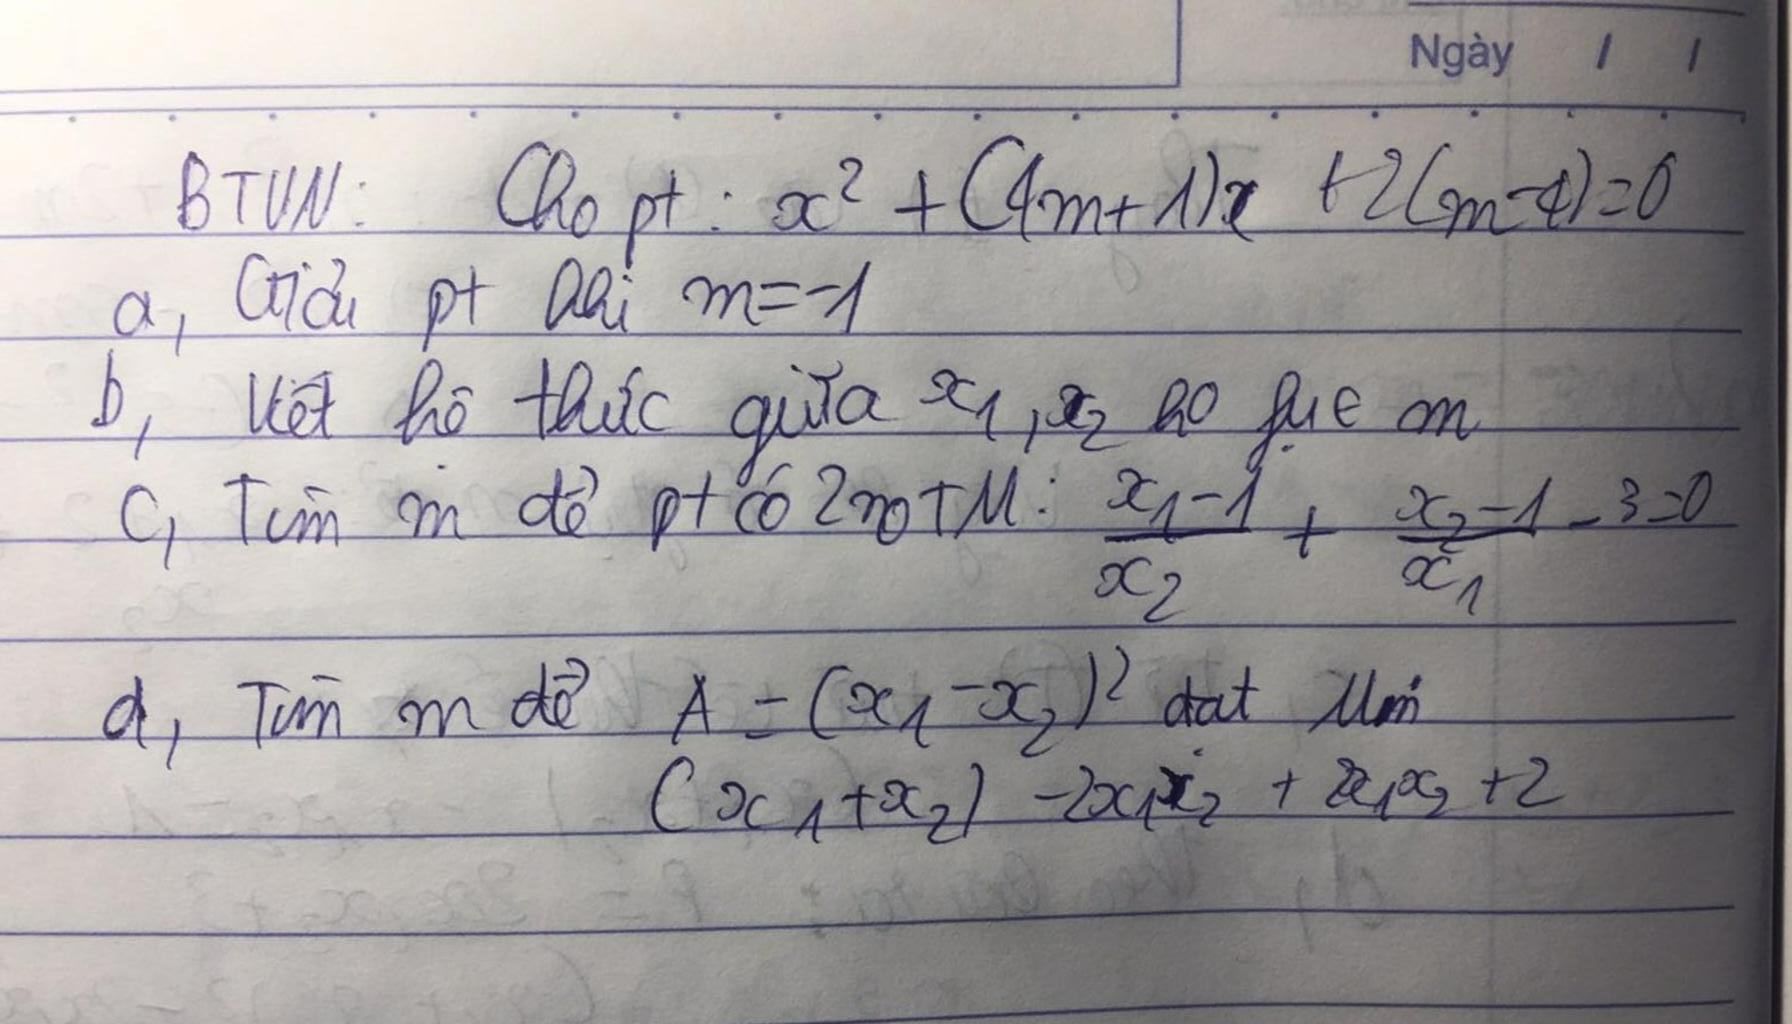 Ngày / /
BTVN: Cho pt: x² + (4m+1)x + 2(m-4)=0
a, Giải pt khi m=-1
b, Viết hê thức giữa x₁, x₂ ko fụ∈ m
c, Tìm m để pt có 2 no TM: (x₁-1)/x₂ + (x₂-1)/x₁ - 3=0
d, Tìm m để A = (x₁-x₂)² đạt Min
(x₁+x₂) -2x₁x₂ + 2x₁x₂ +2